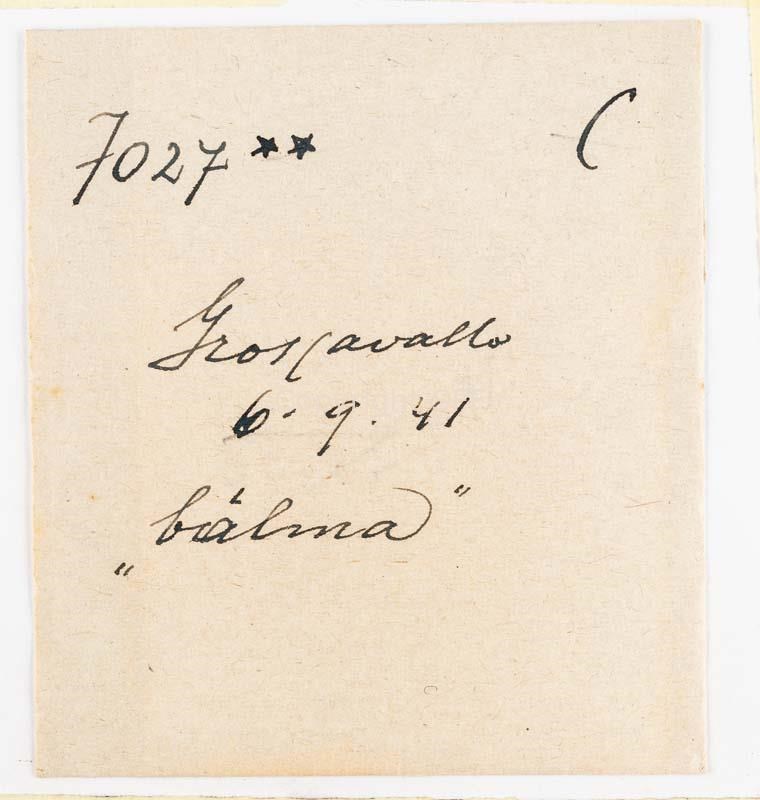 7027** C
Groscavallo
6. 9. 41
„bálma"